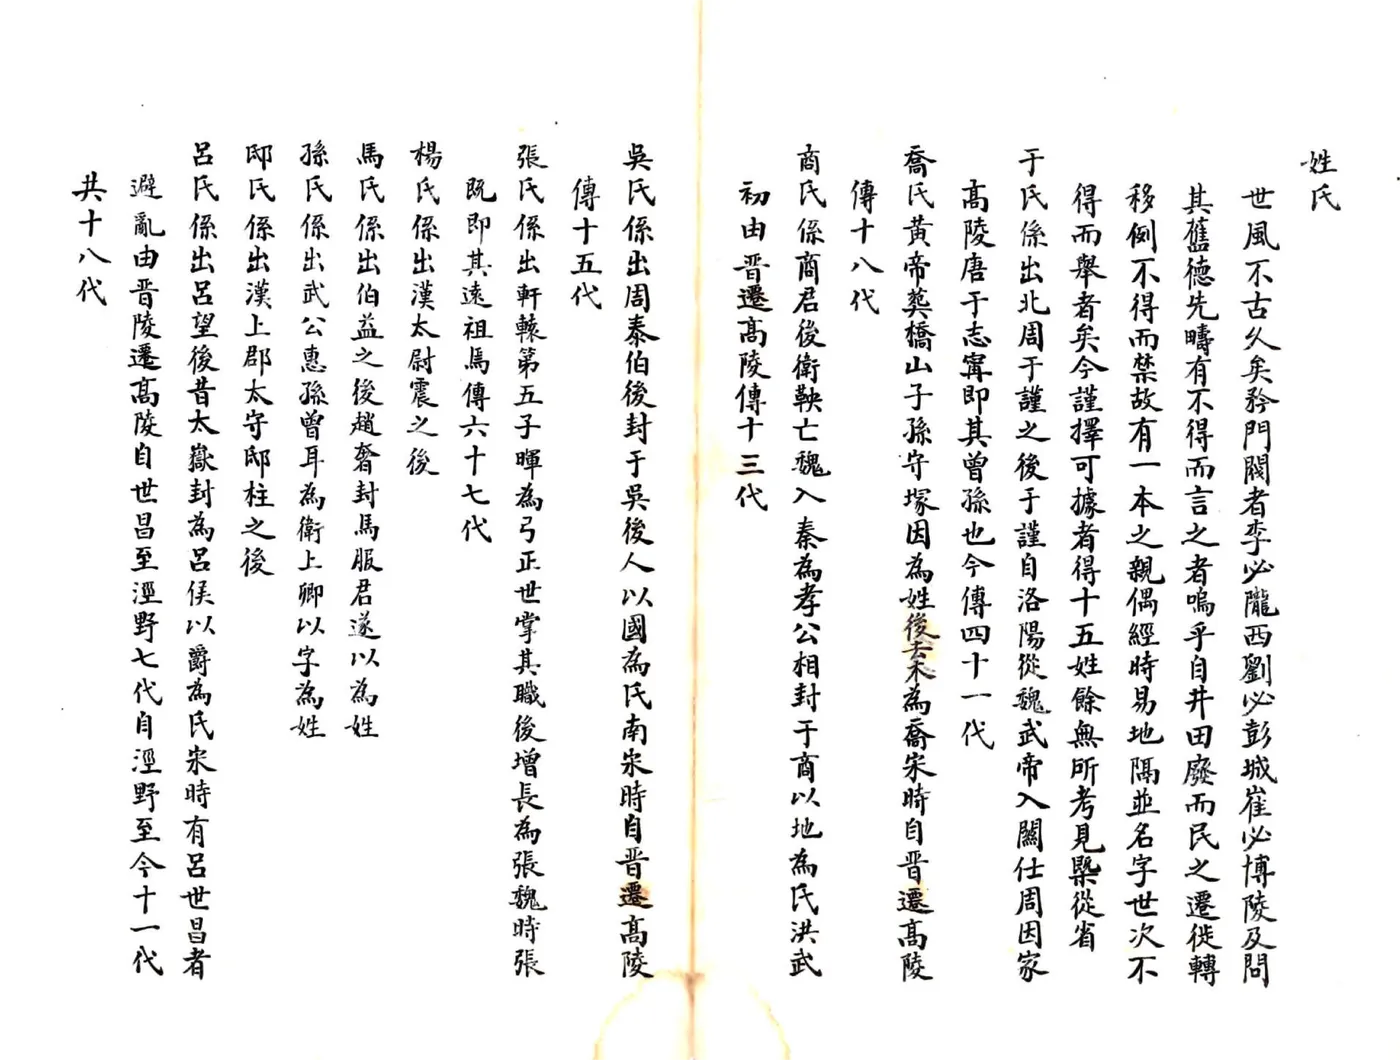 姓氏
世風不古久矣矜門閥者李必隴西劉必彭城崔必博陵及問
其舊德先疇有不得而言之者嗚乎自井田廢而民之遷徙轉
移例不得而禁故有一本之親偶經時易地隔並名字世次不
得而舉者矣今謹擇可據者得十五姓餘無所考見槩從省
于氏係出北周于謹之後于謹自洛陽從魏武帝入關仕周因家
高陵唐于志寗即其曾孫也今傳四十一代
喬氏黃帝葬橋山子孫守塚因為姓後去木為喬宋時自晋遷高陵
傳十八代
商氏係商君後衛鞅亡魏入秦為孝公相封于商以地為氏洪武
初由晋遷高陵傳十三代
吳氏係出周泰伯後封于吳後人以國為氏南宋時自晋遷高陵
傳十五代
張氏係出軒轅第五子暉為弓正世掌其職後增長為張魏時張
既即其遠祖馬傳六十七代
楊氏係出漢太尉震之後
馬氏係出伯益之後趙奢封馬服君遂以為姓
孫氏係出武公惠孫曾耳為衛上卿以字為姓
邸氏係出漢上郡太守邸柱之後
呂氏係出呂望後昔太嶽封為呂侯以爵為氏宋時有呂世昌者
避亂由晋陵遷高陵自世昌至涇野七代自涇野至今十一代
共十八代